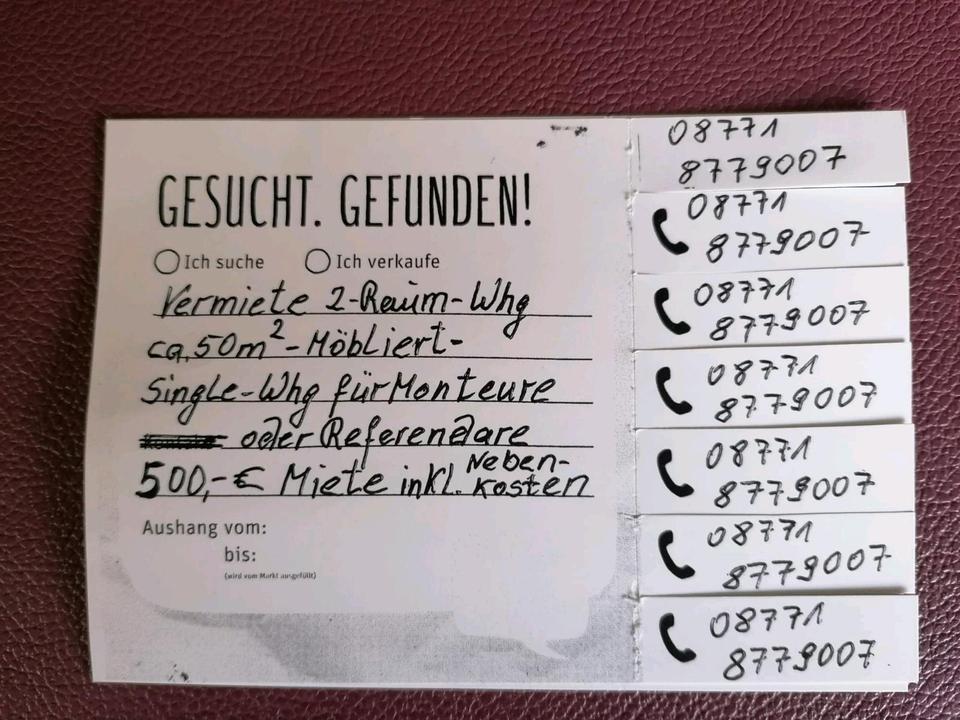 GESUCHT. GEFUNDEN!
Ich suche Ich verkaufe
Vermiete 2-Raum-Whg
ca. 50m²-Möbliert-
Single-Whg für Monteure
oder Referendare
500,-€ Miete inkl. Neben-
kosten
Aushang vom:
bis:
(wird vom Markt ausgefüllt)
08771
8779007
08771
8779007
08771
8779007
08771
8779007
08771
8779007
08771
8779007
08771
8779007